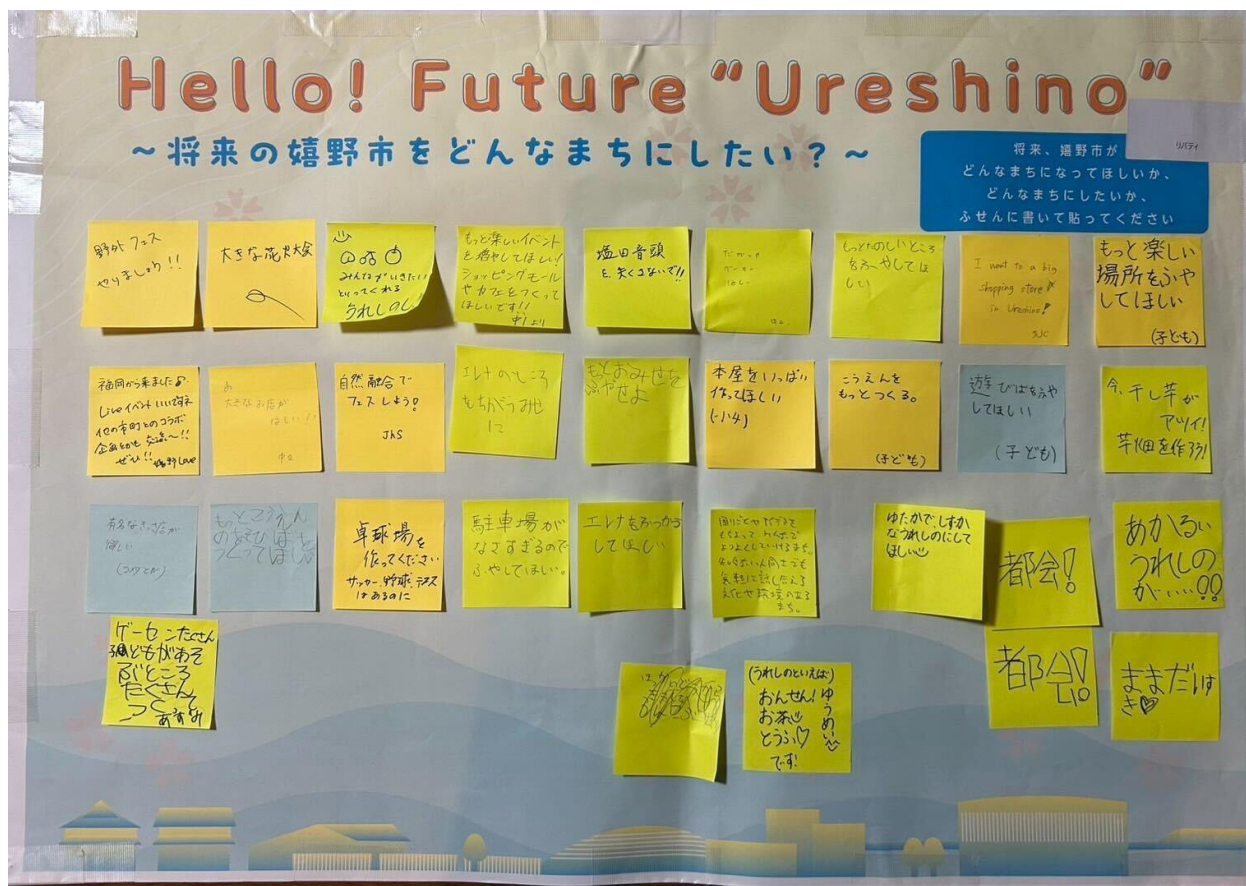 Hello! Future "Ureshino"
～将来の嬉野市をどんなまちにしたい？～
リバティ
将来、嬉野市が
どんなまちになってほしいか、
どんなまちにしたいか、
ふせんに書いて貼ってください
野外フェス
やりましょう!!
大きな花火大会
みんながいきたい!
といってくれる
うれしの!
もっと楽しいイベント
を増やしてほしい!
ショッピングモール
やカフェをつくって
ほしいです!!
中1より
塩田音頭
を失くさないで!!
ほしい
もっとたのしいところ
をふやしてほ
しい
I want to a big
shopping store
in Ureshino!
SJC
もっと楽しい
場所をふや
してほしい
(子ども)
福岡から来ました
Liveイベントいいですね
他の市町とのコラボ
企画とかも交流～!!
ぜひ!!嬉野Love
大きなお店が
ほしい!!
中2
自然融合で
フェスしよう!
JhS
エレナのところ
もちがうみせ
に
もっとおみせを
ふやせよ
本屋をいっぱい
作ってほしい
(小4)
こうえんを
もっとつくる。
(子ども)
遊びばをふや
してほしい
(子ども)
今、干し芋が
アツイ!
芋畑を作ろう!
有名なお店が
欲しい
もっとこうえん
のあそびばを
つくってほしい
卓球場を
作ってください
サッカー、野球、テニス
はあるのに
駐車場が
なさすぎるので
ふやしてほしい。
エレナをふっかつ
してほしい
気軽に話し合える
まち。
ゆたかでしずか
なうれしのにして
ほしい
都会!
あかるい
うれしの
がいい!!
ゲーセンたくさん
子どもがあそ
ぶところ
たくさん
つくって
都会!
ままだいす
き♡
(うれしのといえば)
おんせん!
お茶
とうふ♡
です!
ゆうめい